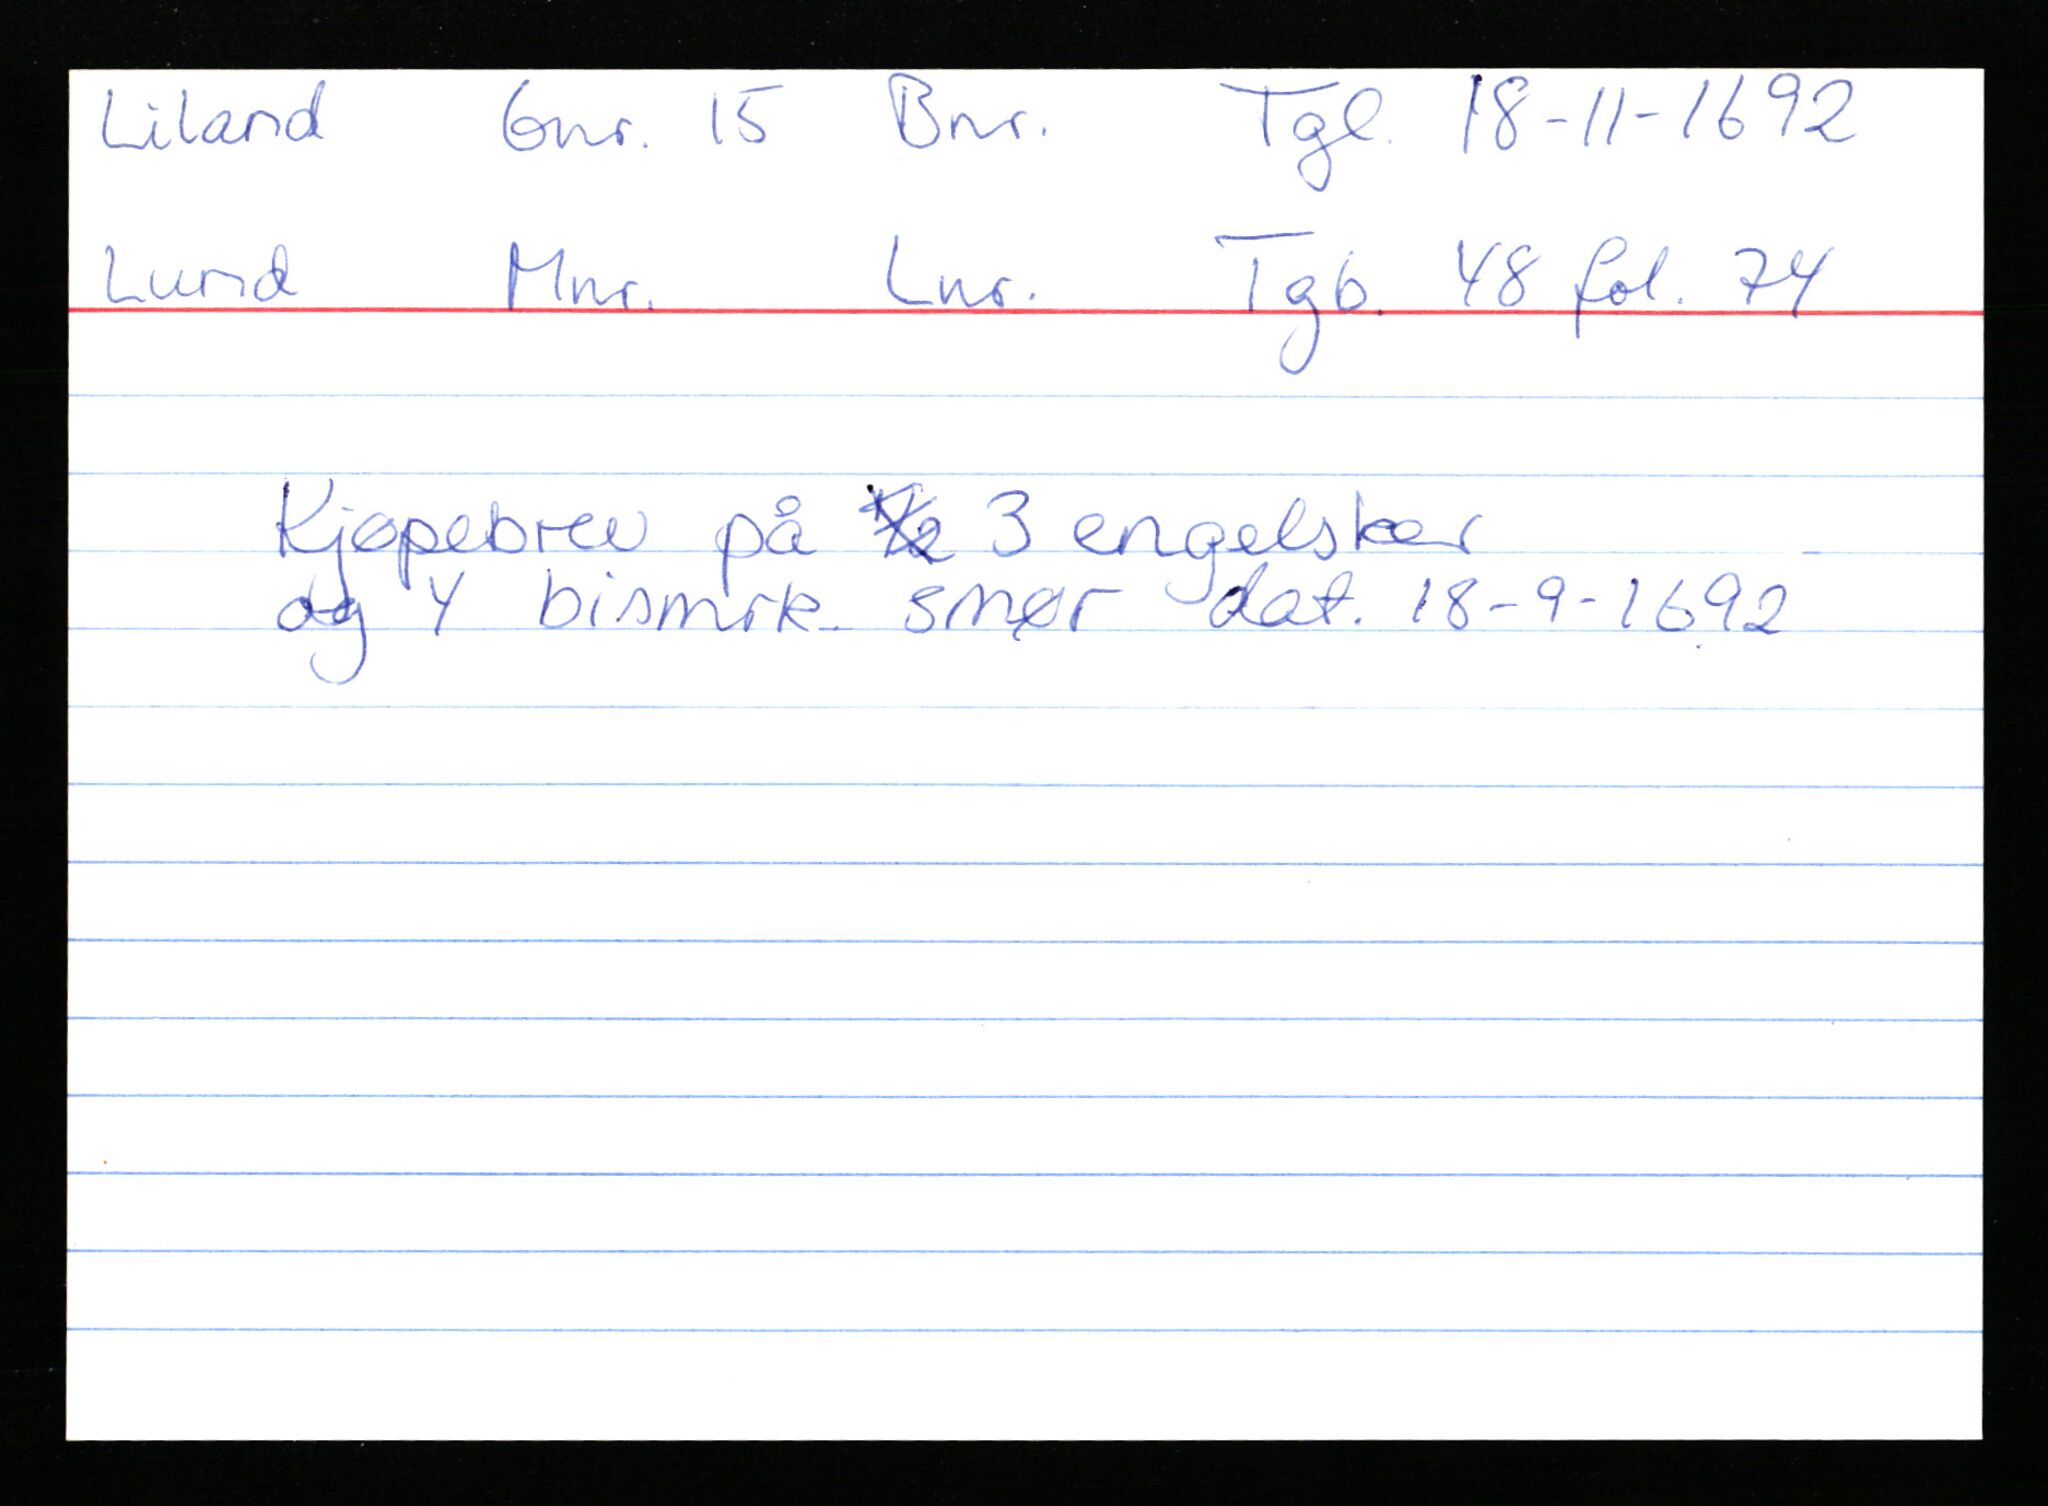 Liland Gnr. 15 Bnr. Tgl. 18-11-1692
Lund Mnr. Lnr. Tgb. 48 fol. 74
Kjøpebrev på 3 engelsker
og 4 bismrk. smør dat. 18-9-1692